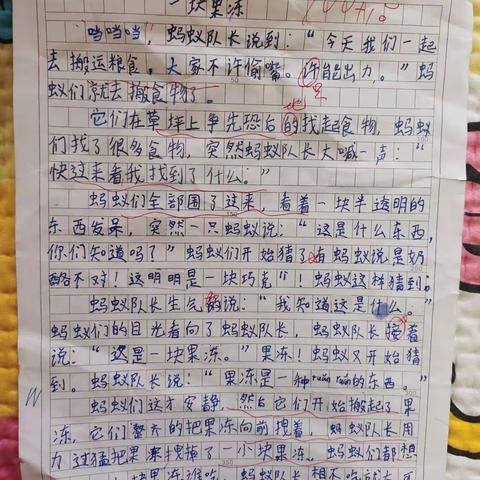 一块果冻
100+18
"哨当当！蚂蚁队长说到："今天我们一起
去搬运粮食，大家不许偷嘴。许能出力。"蚂
是
蚁们就去搬食物了。
地
它们在草坪上争先恐后的找起食物，蚂蚁
们找了很多食物，突然蚂蚁队长大喊一声："
快过来看我找到了什么。"
蚂蚁们全部围了过来，看着一块半透明的
东西发呆，突然一只蚂蚁说："这是什么东西，
你们知道吗？"蚂蚁们开始猜了有蚂蚁说是奶
酪不对！这明明是一块巧克"！蚂蚁这样猜到。
蚂蚁队长生气的说："我知道这是什么。"
蚂蚁们的目光看向了蚂蚁队长，蚂蚁队长接着
说："这是一块果冻。"果冻！蚂蚁又开始猜
到。蚂蚁队长说："果冻是一种ruǎn ruǎn的东西。"
蚂蚁们这才安静，然后它们开始搬起了果
冻，它们整齐的把果冻向前拽着，蚂蚁队长用
力过猛把果冻拽掉了一小块果冻。蚂蚁们都想
块果冻
蚂蚁队长想不吃就